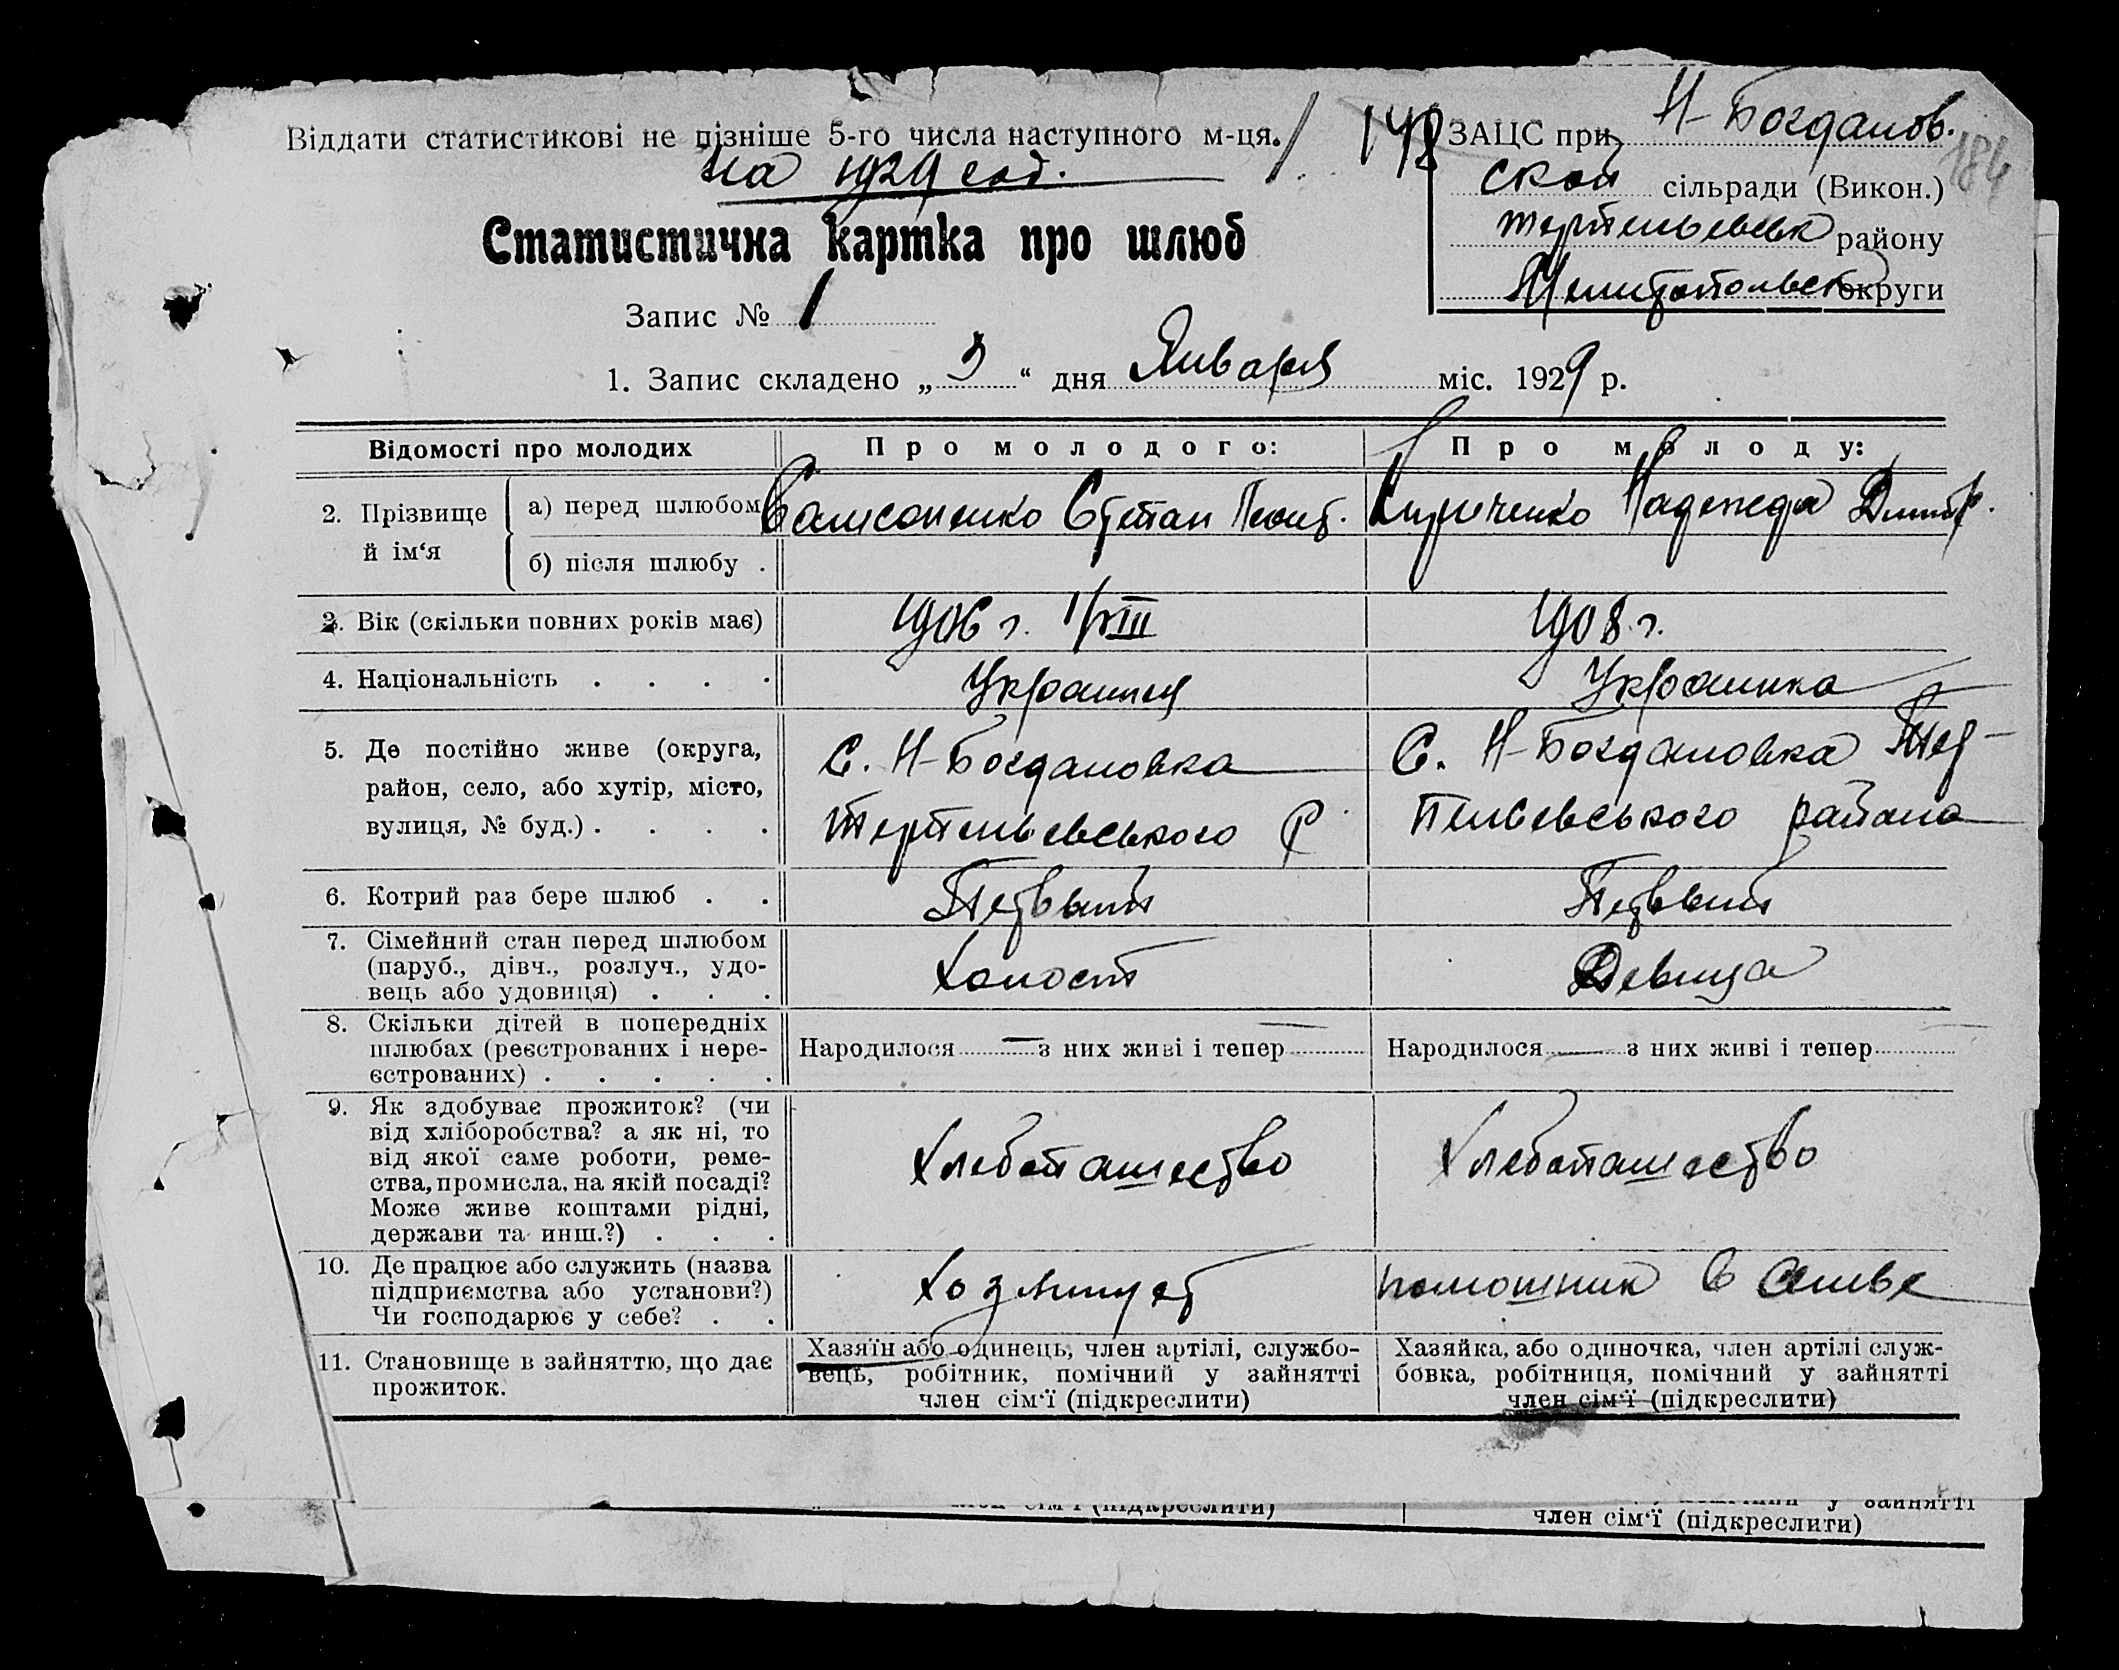 Віддати статистикові не пізніше 5-го числа наступного м-ця.
на 1929 год.
148
184
ЗАЦС при Н-Богданов.
ской сільради (Викон.)
Терпеньевськ району
Мелитопольск округи
Статистична картка про шлюб
Запис № 1
1. Запис складено „ 3 “ дня Января міс. 1929 р.
Відомості про молодих Про молодого: Про молоду:
2. Прізвище й ім‘я
а) перед шлюбом Самсоненко Степан Леонт. Кириченко Надежда Дмитр.
б) після шлюбу .
3. Вік (скільки повних років має) 1906 г. 1/VIII 1908 г.
4. Національність . . . . Украинец Украинка
5. Де постійно живе (округа,
район, село, або хутір, місто,
вулиця, № буд.) . . . .
С. Н-Богдановка
Терпеньевського Р
С. Н-Богдановка Тер-
пеньевського района
6. Котрий раз бере шлюб . . Первый Первый
7. Сімейний стан перед шлюбом
(паруб., дівч., розлуч., удо-
вець або удовиця) . . .
Холост Девица
8. Скільки дітей в попередніх
шлюбах (реєстрованих і нере-
єстрованих) . . . . .
Народилося — з них живі і тепер —
Народилося — з них живі і тепер —
9. Як здобуває прожиток? (чи
від хліборобства? а як ні, то
від якої саме роботи, реме-
ства, промисла, на якій посаді?
Може живе коштами рідні,
держави та инш.?) . . .
Хлебопашество Хлебопашество
10. Де працює або служить (назва
підприємства або установи?)
Чи господарює у себе? . .
Хозяинует помошник в семье
11. Становище в зайняттю, що дає
прожиток.
Хазяїн або одинець, член артілі, службо-
вець, робітник, помічний у зайнятті
член сім‘ї (підкреслити)
Хазяйка, або одиночка, член артілі служ-
бовка, робітниця, помічний у зайнятті
член сім‘ї (підкреслити)
член сім‘ї (підкреслити)
у зайнятті
член сім‘ї (підкреслити)